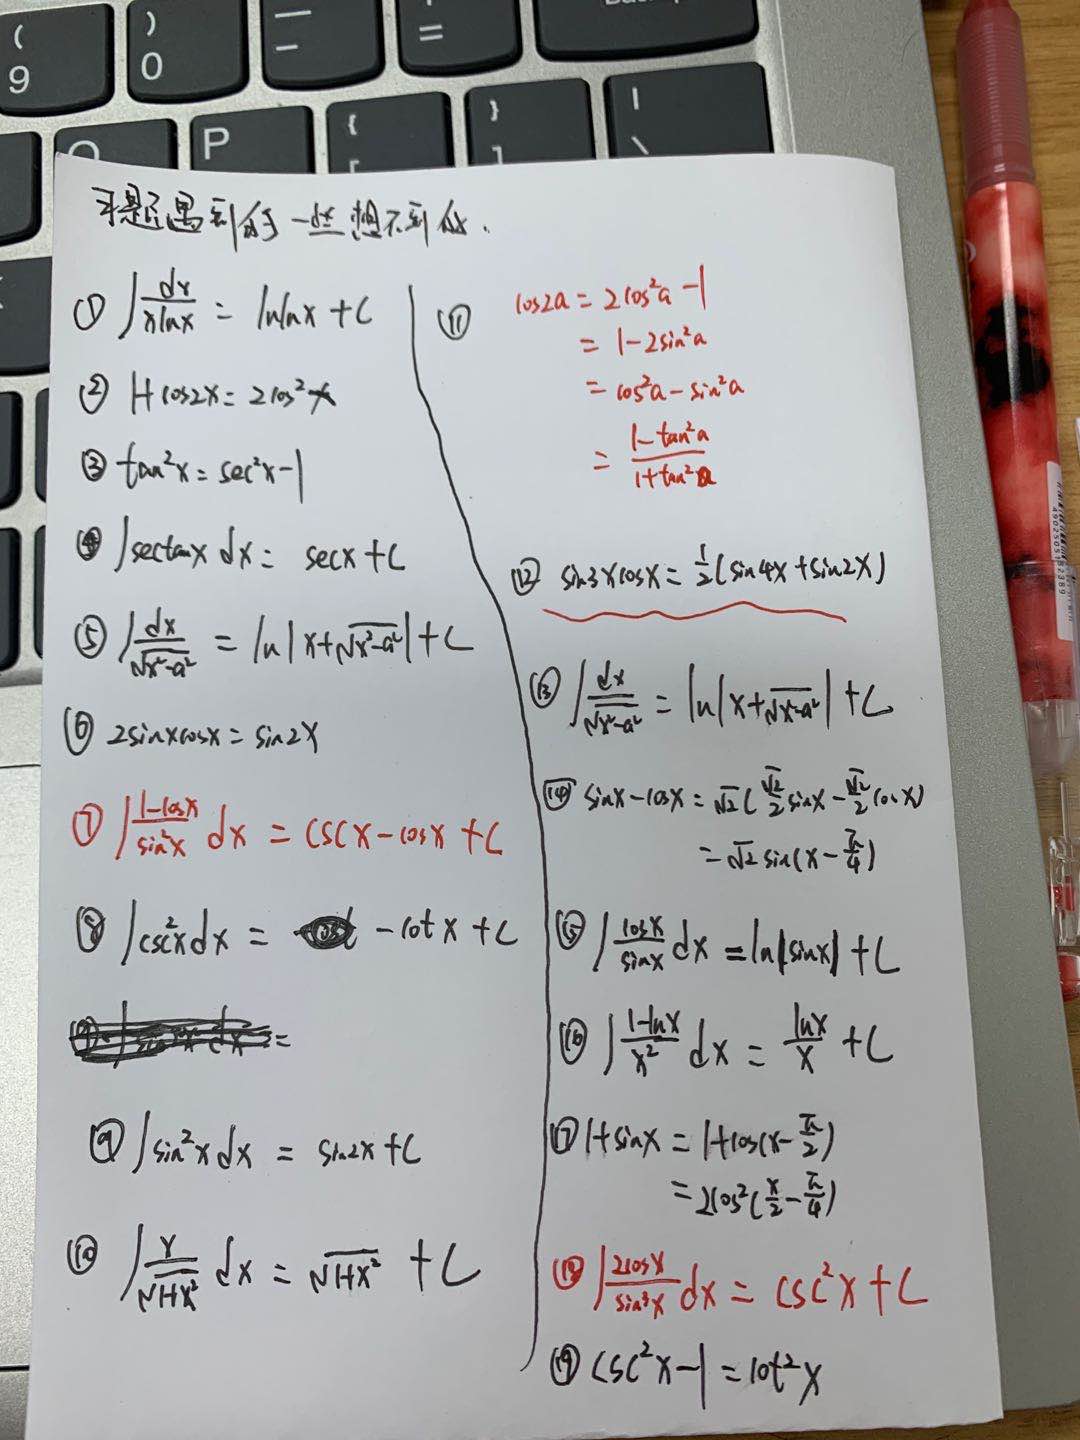 (
9
)
0
—
+
=
Backspace
P
{
[
}
]
|
\
习题遇到的一些想不到的.
① ∫ dx/(xlnx) = lnlnx + C
② 1+cos2x = 2cos²x
③ tan²x = sec²x-1
④ ∫secxtanx dx = secx + C
⑤ ∫ dx/√(x²-a²) = ln|x+√(x²-a²)| + C
⑥ 2sinxcosx = sin2x
⑦ ∫ (1-cosx)/sin²x dx = cscx - cosx + C
⑧ ∫csc²x dx = -cotx + C
⑨ ∫sin²x dx = sin2x + C
⑩ ∫ x/√(1+x²) dx = √(1+x²) + C
⑪ cos2a = 2cos²a - 1
= 1-2sin²a
= cos²a - sin²a
= (1-tan²a)/(1+tan²a)
⑫ sin3xcosx = 1/2(sin4x + sin2x)
⑬ ∫ dx/√(x²-a²) = ln|x+√(x²-a²)| + C
⑭ sinx - cosx = √2(√2/2 sinx - √2/2 cosx)
= √2 sin(x - π/4)
⑮ ∫ cosx/sinx dx = ln|sinx| + C
⑯ ∫ (1-lnx)/x² dx = lnx/x + C
⑰ 1+sinx = 1+cos(x - π/2)
= 2cos²(x/2 - π/4)
⑱ ∫ 2cosx/sin³x dx = csc²x + C
⑲ csc²x - 1 = cot²x